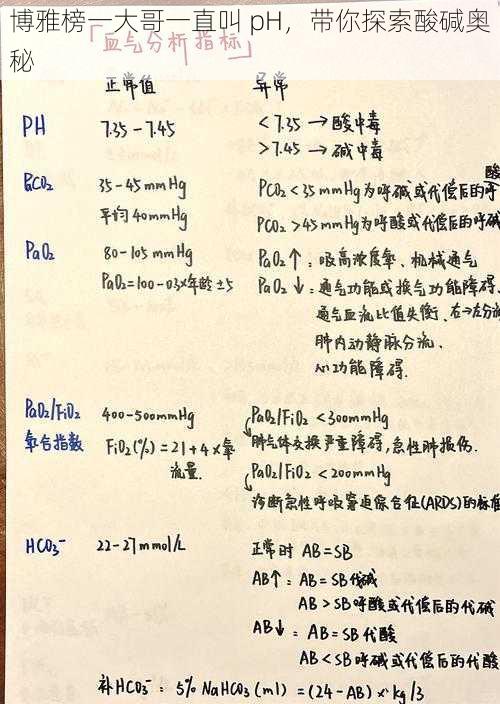 博雅榜一大哥一直叫 pH，带你探索酸碱奥
秘
「血气分析指标」
正常值 异常
PH 7.35-7.45 <7.35→酸中毒
>7.45→碱中毒
PCO₂ 35-45mmHg PCO₂<35mmHg为呼碱或代偿后的呼
酸
平均40mmHg PCO₂>45mmHg为呼酸或代偿后的呼碱
PaO₂ 80-105mmHg PaO₂↑:吸高浓度氧、机械通气
PaO₂=100-03×年龄±5 PaO₂↓:通气功能或换气功能障碍.
通气血流比值失衡、右→左分流
肺内动静脉分流.
心功能障碍.
PaO₂/FiO₂ 400-500mmHg PaO₂/FiO₂<300mmHg
氧合指数 FiO₂(%)=21+4×氧 肺气体交换严重障碍,急性肺损伤.
流量. PaO₂/FiO₂<200mmHg
诊断急性呼吸窘迫综合征(ARDS)的标准
HCO₃⁻ 22-27mmol/L 正常时 AB=SB
AB↑: AB=SB代碱
AB>SB呼酸或代偿后的代碱
AB↓: AB=SB代酸
AB<SB呼碱或代偿后的代酸
补HCO₃⁻: 5% NaHCO₃(ml)=(24-AB)×kg/3